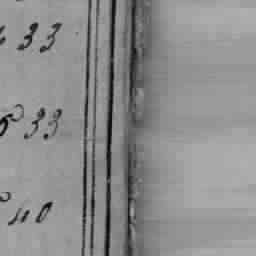 33
33
40